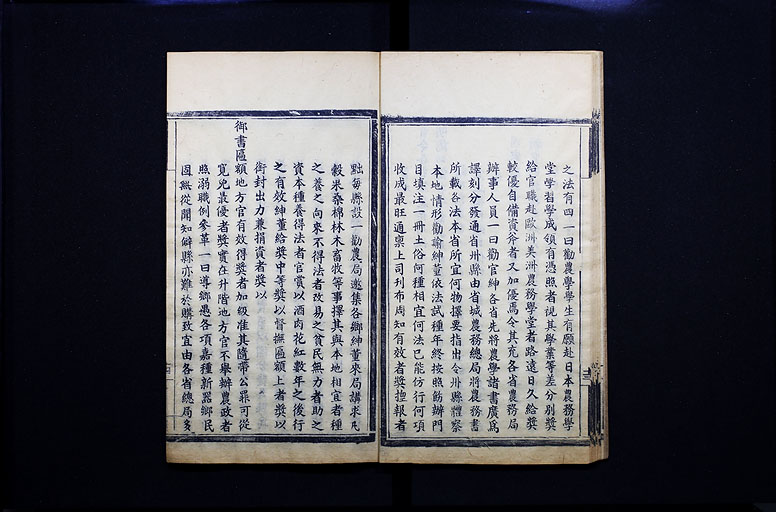 之法有四一曰勸農學學生有願赴日本農務學
堂學習學成領有憑照者視其學業等差分別獎
給官職赴歐洲美洲農務學堂者路遠日久給獎
較優自備資斧者又加優焉令其充各省農務局
辦事人員一曰勸官紳各省先將農學諸書廣爲
譯刻分發通省州縣由省城農務總局將農務書
所載各法本省所宜何物擇要指出令州縣體察
本地情形勸諭紳董依法試種年終按照飭辦門
目填注一冊土俗何種相宜何法已能仿行何項
收成最旺通稟上司刋布周知有效者獎捏報者
黜每縣設一勸農局邀集各鄉紳董來局講求凡
穀米桑棉林木畜牧等事擇其與本地相宜者種
之養之向來不得法者改易之貧民無力者助之
資本種養得法者官賞以酒肉花紅數年之後行
之有效紳董給獎中等獎以督撫匾額上者獎以
銜封出力兼捐資者獎以
御書匾額地方官有效得獎者加級准其隨帶公罪可從
寬免最優者獎實在升階地方官不舉辦農政者
照溺職例參革一曰導鄉愚各項嘉種新器鄉民
固無從聞知僻縣亦難於購致宜由各省總局多